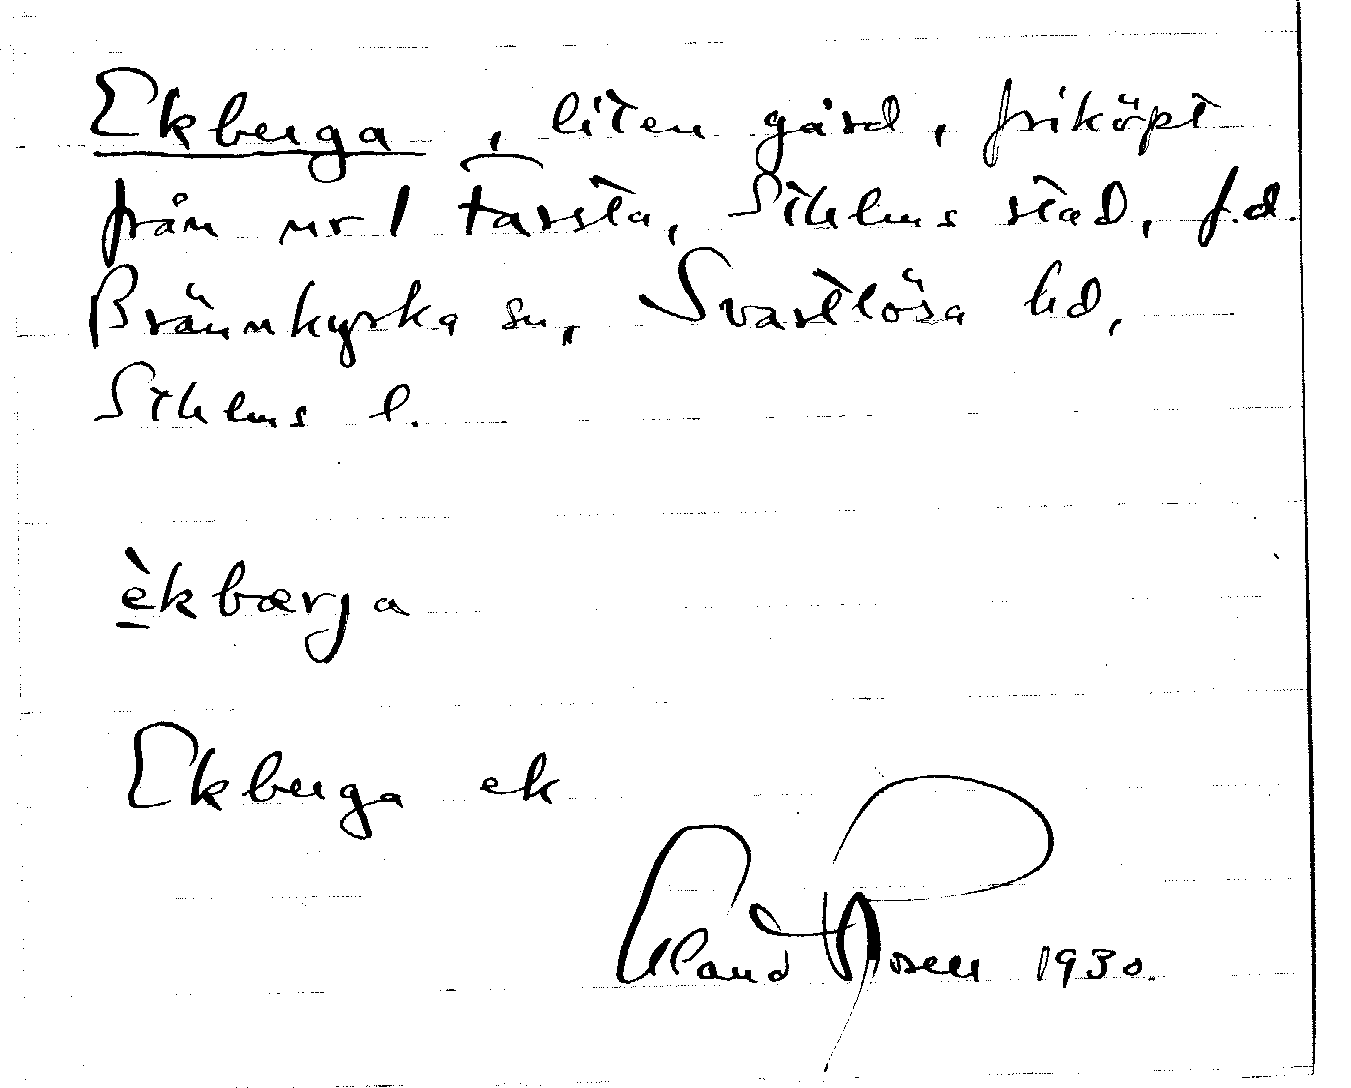 Ekberga, liten gård, friköpt
från nr 1 Farsta, Sthlms stad, f.d.
Brännkyrka sn, Svartlösa hd,
Sthlms l.
èkbærja
Ekberga ek
Rosell 1930.